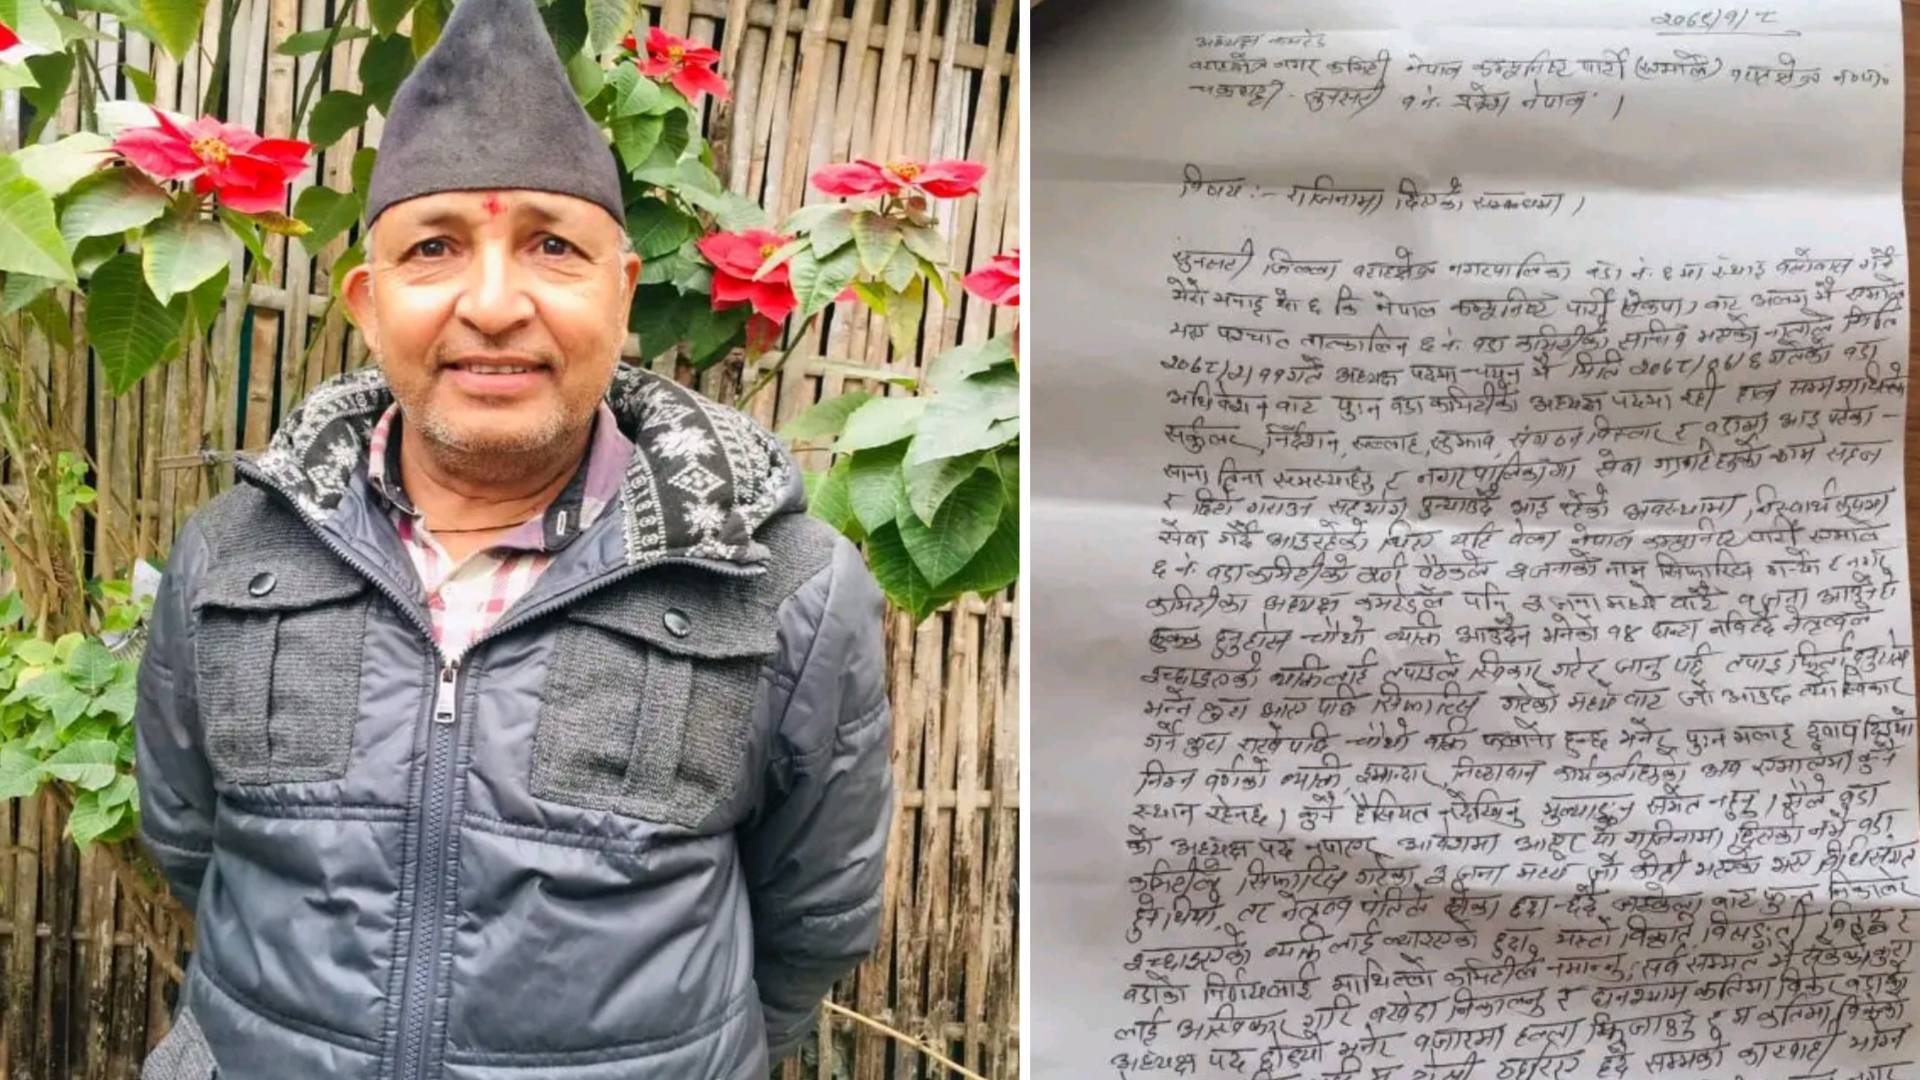 २०७९/१/८
अध्यक्ष कमरेड
बराहक्षेत्र नगर कमिटी नेपाल कम्युनिष्ट पार्टी (एमाले) बराहक्षेत्र न०पा०
चक्रघट्टी - सुनसरी १ नं. प्रदेश नेपाल ।
विषय :- राजिनामा दिएको सम्बन्धमा ।
सुनसरी जिल्ला बराहक्षेत्र नगरपालिका वडा नं. ६ मा स्थाइ बसोबास गर्ने
मेरो भनाइ यो छ कि नेपाल कम्युनिष्ट पार्टी (नेकपा) बाट अलग भै एमाले
भए पश्चात तात्कालिन ६ नं. वडा कमिटीको सचिव भएको नाताले मिति
२०७८/२/११ गते अध्यक्ष पदमा चयन भै मिति २०७८/०६/६ गतेको वडा
अधिवेशन बाट पुन वडा कमिटीको अध्यक्ष पदमा रही हाल सम्म माथिल्लो
सर्कुलर, निर्देशन, सल्लाह, सुझाव, संगठन विस्तार र वडामा आइ परेका -
साना तिना समस्याहरु र नगरपालिकामा सेवा ग्राहीहरुको काम सहज
र छिटो गराउन सहयोग पुर्‍याउँदै आइ रहेको अवस्थामा, निस्वार्थ रुपमा
सेवा गर्दै आइरहेको थिए यति बेला नेपाल कम्युनिष्ट पार्टी एमाले
६ नं. वडा कमिटीको पूर्ण बैठकले ३ जनाको नाम सिफारिस गर्‍यो र नगर
कमिटीका अध्यक्ष कमरेडले पनि ३ जना मध्ये बाटै १ जना आउने हो
हुनुहोस चौथो व्यक्ति आउदैन भनेको १४ घन्टा नबित्दै नेतृत्वले
इच्छाएको व्यक्तिलाई तपाइले स्विकार गरेर जानु पर्छ तपाइ फिर्ता हुनुहोस
भन्ने कुरा आए पछि सिफारिस गरेको मध्ये बाट जो आउछ त्यो स्विकार
गर्ने कुरा राखे पछि चौथो व्यक्ति हुन्छ भनेर पुन मलाइ दवाव दिइयो
निम्न वर्गको व्यक्ती, इमान्दार, निष्ठावान कार्यकर्ताहरुको अब एमालेमा कुनै
स्थान रहेनछ । कुनै हैसियत नदेखिनु मुल्याङ्कन समेत नहुनु । मैले वडा
को अध्यक्ष पद नपाएर आवेगमा आएर यो राजिनामा दिएको नभै वडा
कमिटीले सिफारिस गरेका ३ जना मध्य जो कोही भएको भए विधिसंगत
हुने थियो, तर नेतृत्व पंतिले मौका हुदा-हुदै बाट पुन निकालेर
इच्छाइएको व्यक्ति लाई ल्याइएको हुदा यस्तो विकृति विसङ्गती र
वडाको निर्णयलाई माथिल्लो कमिटीले नमान्नु, सर्व सम्मत भै सकेको कुरा
लाई अस्विकार गरि बखेडा निकाल्नु र घनश्याम कतिमा विकेर वडाको
अध्यक्ष पद छोड्यो भनेर बजारमा हल्ला फिजाउनु म कतिमा विकेको